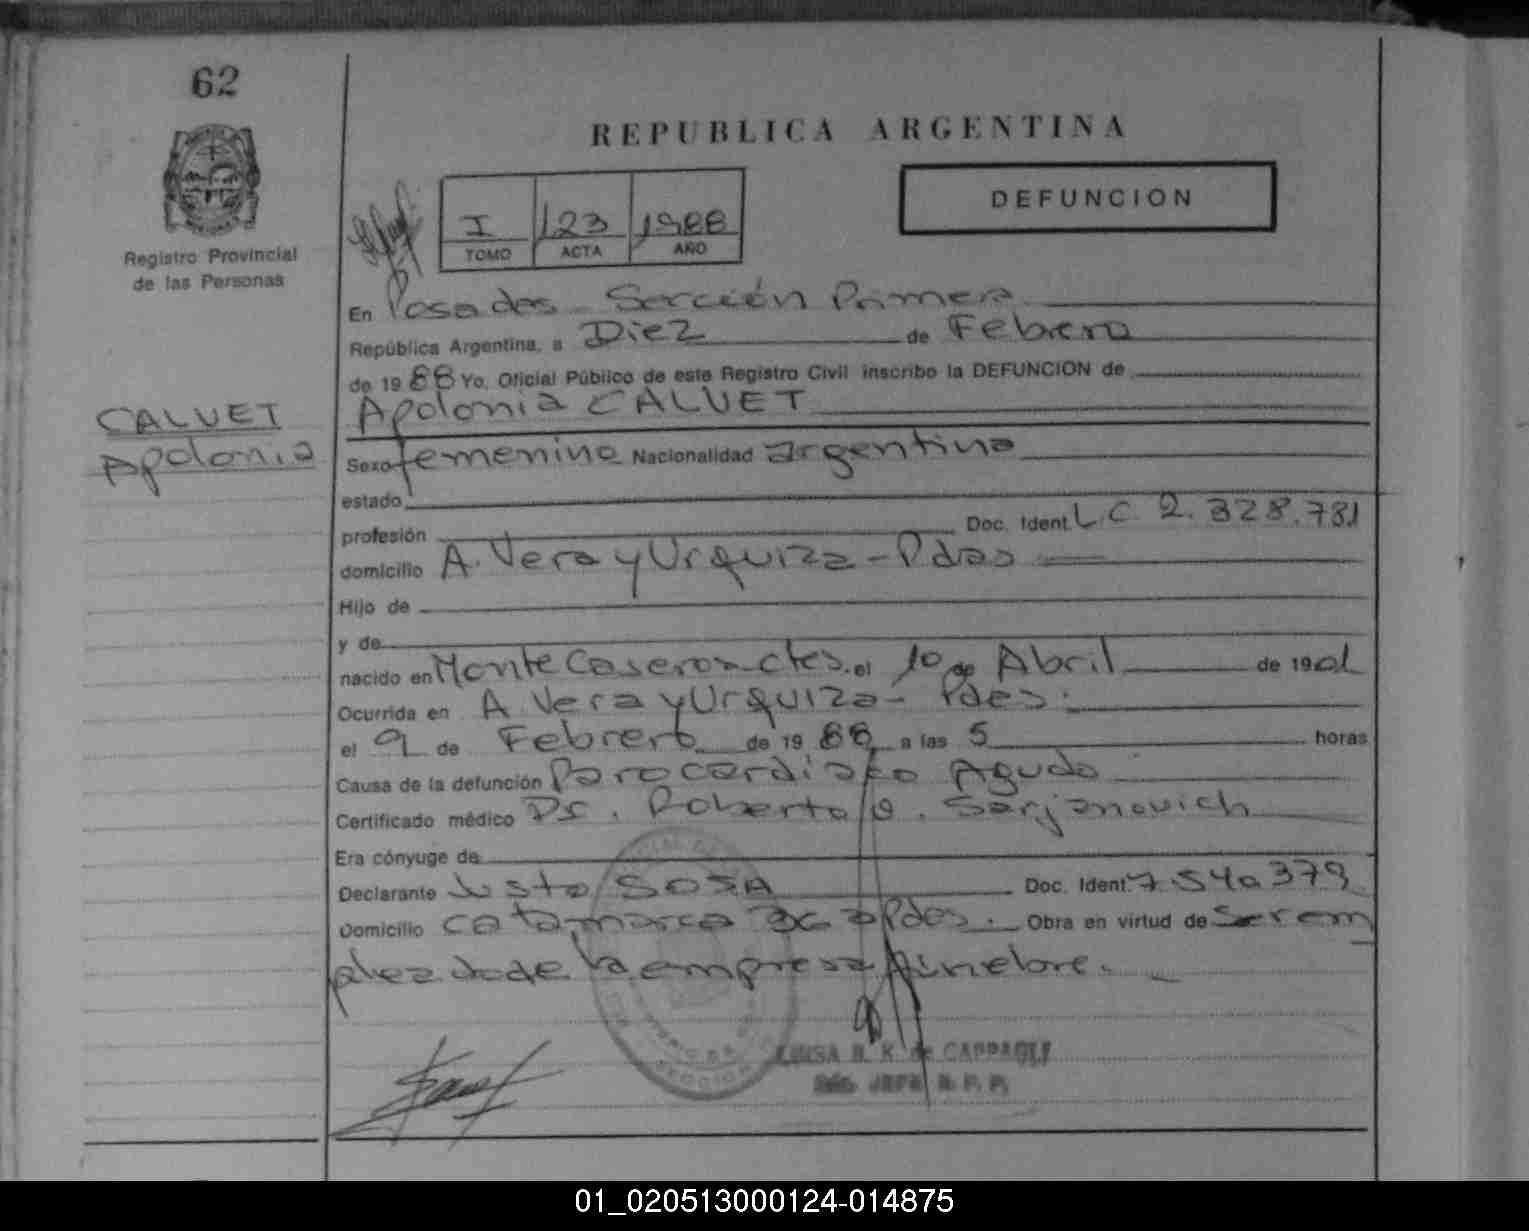 62
REPUBLICA ARGENTINA
DEFUNCION
I 123 1988
TOMO ACTA AÑO
Registro Provincial
de las Personas
En Posadas - Sección Primera
República Argentina, a Diez de Febrero
de 1988 Yo, Oficial Público de este Registro Civil inscribo la DEFUNCION de
CALVET
Apolonia
Apolonia CALVET
Sexo femenino Nacionalidad argentina
estado
profesión Doc. Ident. L.C 2.328.781
domicilio A. Vera y Urquiza - Pdas
Hijo de
y de
nacido en Monte Caseros Ctes. el 10 de Abril de 1901
Ocurrida en A Vera y Urquiza - Pdas.
el 9 de Febrero de 1988 a las 5 horas
Causa de la defunción Parocardiaco Agudo
Certificado médico Dr. Roberto O. Sarjanovich
Era cónyuge de
Declarante Justo SOSA Doc. Ident. 7.540379
Domicilio Catamarca Pdas. Obra en virtud de Ser em
pleado de la empresa fúnebre.
SECCION
LUISA B. K. de CAPPAGLI
JEFE R. P. P.
01_020513000124-014875